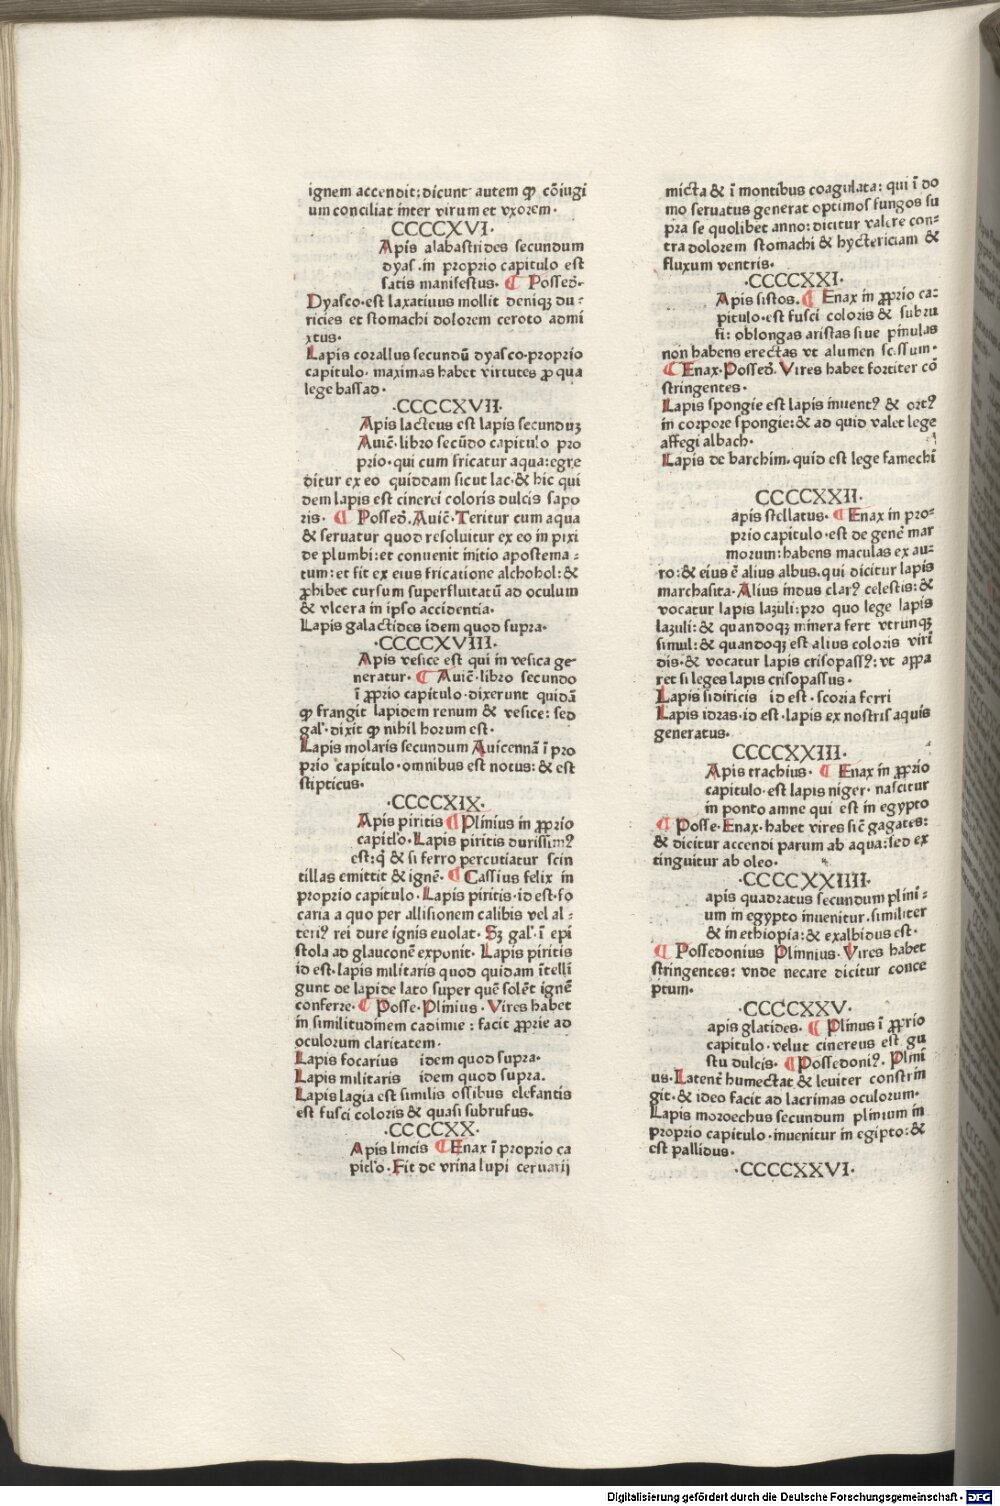 ignem accendit: dicunt autem ꝙ cōiugi
um conciliat inter virum et vxorem.
CCCCXVI.
Apis alabastrides secundum
dyas. in proprio capitulo est
satis manifestus. ¶ Possed.
Dyasco. est laxatiuus mollit deniqꝫ du-
ricies et stomachi dolorem ceroto admi
xtus.
Lapis corallus secundū dyasco. proprio
capitulo. maximas habet virtutes ꝓ qua
lege bassad.
.CCCCXVII.
Apis lacteus est lapis secunduꝫ
Auic̄. libro secūdo capitulo pro
prio. qui cum fricatur aqua: egre
ditur ex eo quiddam sicut lac. & hic qui
dem lapis est cinerei coloris dulcis sapo
ris. ¶ Possed̄. Auic̄. Teritur cum aqua
& seruatur quod resoluitur ex eo in pixi
de plumbi: et conuenit initio apostema-
tum: et fit ex eius fricatione alchohol: &
ꝓhibet cursum superfluitatū ad oculum
& vlcera in ipso accidentia.
Lapis galactides idem quod supra.
.CCCCXVIII.
Apis vesice est qui in vesica ge-
neratur. ¶ Auic̄. libro secundo
ī ꝓprio capitulo. dixerunt quidā
ꝙ frangit lapidem renum & vesice: sed
gal'. dixit ꝙ nihil horum est.
Lapis molaris secundum Auicennā ī pro
prio capitulo. omnibus est notus: & est
stipticus.
.CCCCXIX.
Apis piritis ¶ Plinius in ꝓprio
capitl'o. Lapis piritis durissimꝰ
est: q̄ & si ferro percutiatur scin
tillas emittit & ignē. ¶ Cassius felix in
proprio capitulo. Lapis piritis. id est. fo
caria a quo per allisionem calibis vel al-
teriꝰ rei dure ignis euolat. Sꝫ gal'. ī epi
stola ad glauconē exponit. Lapis piritis
id est. lapis militaris quod quidam ītelli
gunt de lapide lato super quē solēt ignē
conferre. ¶ Posse. Plinius. Vires habet
in similitudinem cadimie: facit ꝓprie ad
oculorum claritatem.
Lapis focarius idem quod supra.
Lapis militaris idem quod supra.
Lapis lagia est similis ossibus elefantis
est fusci coloris & quasi subrufus.
.CCCCXX.
Apis lincis ¶ Enax ī proprio ca
pitl'o. Fit de vrina lupi ceruarij
micta & ī montibus coagulata: qui ī do
mo seruatus generat optimos fungos su
pra se quolibet anno: dicitur valere con-
tra dolorem stomachi & hyctericiam &
fluxum ventris.
.CCCCXXI.
Apis sistos. ¶ Enax in ꝓprio ca-
pitulo. est fusci coloris & subru
fi: oblongas aristas siue pinulas
non habens erectas vt alumen scissum.
¶ Enax. Possed̄. Vires habet fortiter cō
stringentes.
Lapis spongie est lapis inuentꝰ & ortꝰ
in corpore spongie: & ad quid valet lege
affegi albach.
Lapis de barchim. quid est lege famechi
CCCCXXII.
apis stellatus. ¶ Enax in pro-
prio capitulo. est de genē mar
morum: habens maculas ex au-
ro: & eius ē alius albus. qui dicitur lapis
marchasita. Alius indus clarꝰ celestis: &
vocatur lapis lazuli: pro quo lege lapis
lazuli: & quandoqꝫ minera fert vtrunqꝫ
simul: & quandoqꝫ est alius coloris viri
dis. & vocatur lapis crisopassꝰ: vt appa
ret si leges lapis crisopassus.
Lapis sidiricis id est. scoria ferri
Lapis idras. id est. lapis ex nostris aquis
generatus.
CCCCXXIII.
Apis trachius. ¶ Enax in ꝓprio
capitulo. est lapis niger. nascitur
in ponto amne qui est in egypto
¶ Posse. Enax. habet vires sic̄ gagates:
& dicitur accendi parum ab aqua: sed ex
tinguitur ab oleo.
.CCCCXXIIII.
apis quadratus secundum plini-
um in egypto inuenitur. similiter
& in ethiopia: & exalbidus est.
¶ Possedonius Plinnius. Vires habet
stringentes: vnde necare dicitur conce
ptum.
.CCCCXXV.
apis glatides. ¶ Plinus ī ꝓprio
capitulo. velut cinereus est gu
stu dulcis. ¶ Possedoniꝰ. Plini
us. Latent̄ humectat & leuiter constrin
git. & ideo facit ad lacrimas oculorum.
Lapis moroechus secundum plinium in
proprio capitulo. inuenitur in egipto: &
est pallidus.
.CCCCXXVI.
Digitalisierung gefördert durch die Deutsche Forschungsgemeinschaft - DFG